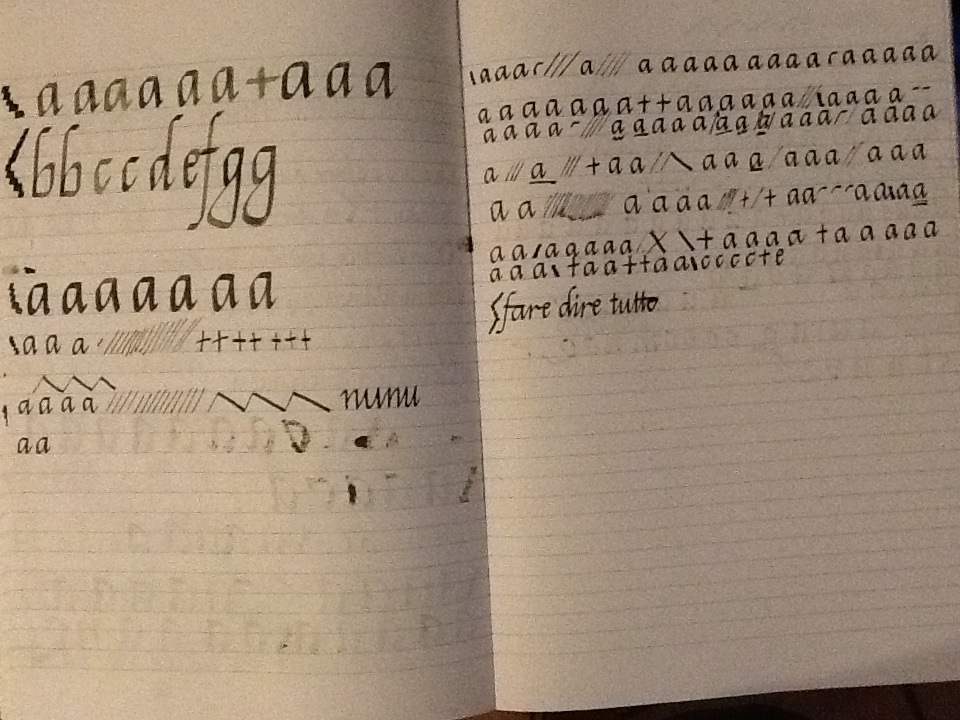 aaaaaa+aaa
bbccdefgg
aaaaaaa
aaa ///////////// ++++ +++
aaaa ///////////// nunu
aa
aaar///a//// aaaaaaaaaraaaaa
aaaaaaa++aaaaaa///\aaaa--
aaaa-////aaaaa/aaa/aaar/aaaa
a///a///+aa//\aaa/aaa//aaa
aa////////aaaa///+/+aa---aaıaa
aa/aaaaa/X\+aaaa+aaaaa
aaa\+aa++aa\cccc+e
fare dire tutto